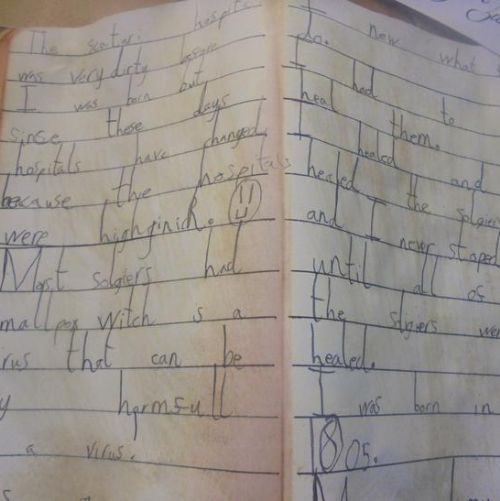 The scatari hospital
was very dirty before
I was born but
since those days
hospitals have changed,
because the hospitals
were highginich.
Most solgiers had
mallpox witch is a
irus that can be
y harmfull
a virus.
I new what
do.
I had to
heal them.
I healed and
healed the solgiers
and I never stoped
until all of
the sligiers wer
healed.
I was born in
1805.